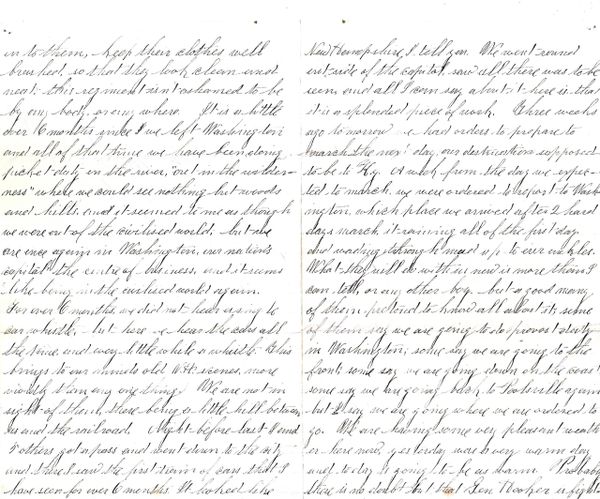 in to them, keep their clothes well
brushed, so that they look clean and
neat. this regiment isn't ashamed to be
by any body, or any where. It is a little
over 6 months since we left Washington
and all of that time we have been doing
picket duty on the river, "out in the wilder-
ness" where we could see nothing but woods
and hills. and it seemed to me as though
we were out of the civilised world. but we
are once again in Washington, our nation's
capital the centre of business, and it seems
like being in the civilised world again.
For over 6 months we did not hear a single
car whistle. but here we hear the cars all
the time and every little while a whistle. This
brings to our minds old N.H. scenes more
vividly than any one thing. We are not in
sight of them, there being a little hill between
us and the railroad. Night before last I and
5 others got a pass and went down to the city
and there I saw the first train of cars that I
have seen for over 6 months. It looked like
New Hampshire, I tell you. We went round
out side of the capitol, saw all there was to be
seen and all I can say about it here is that
it is a splendid piece of work. Three weeks
ago to morrow we had orders to prepare to
march the next day, our destination supposed
to be to Ky. A week from the day we expec-
ted to march, we were ordered to report to Wash-
ington, which place we arrived after 2 hard
days march it raining all of the first day
and wading through mud up to our ankles.
What they will do with us now is more than I
can tell, or any other boy. but a good many
of them pretend to know all about it, some
of them say we are going to do provost duty
in Washington, some say we are going to the
front, some say we are going down on the coast
some say we are going back to Poolsville again
but I say we are going where we are ordered to
go. We are having some very pleasant weath-
er here now, yesterday was a very warm day
and to day is going to be as warm. Probably
there is no doubt but that Hooker is fight